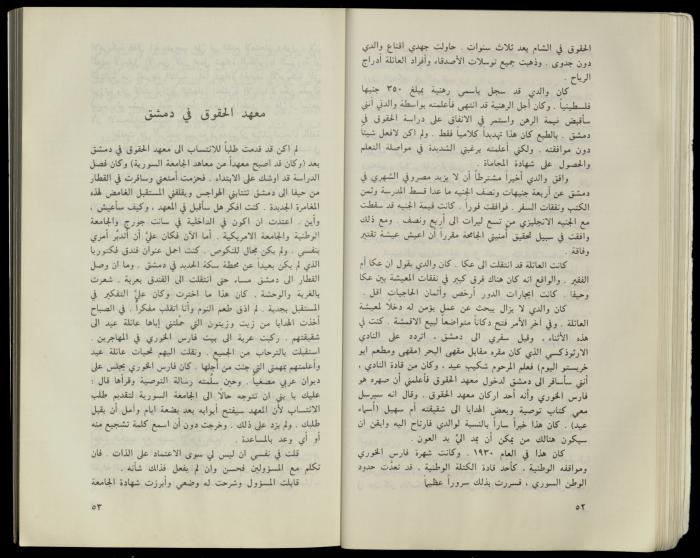 الحقوق في الشام بعد ثلاث سنوات . حاولت جهدي اقناع والدي
دون جدوى . وذهبت جميع توسلات الأصدقاء وأفراد العائلة أدراج
الرياح .
كان والدي قد سجل باسمي رهنية بمبلغ ٣٥٠ جنيها
فلسطينياً . وكان أجل الرهنية قد انتهى فأعلمته بواسطة والدتي أنني
سأقبض قيمة الرهن واستمر في الانفاق على دراسة الحقوق في
دمشق . بالطبع كان هذا تهديداً كلامياً فقط . ولم اكن لافعل شيئاً
دون موافقته . ولكني أعلمته برغبتي الشديدة في مواصلة التعلم
والحصول على شهادة المحاماة .
وافق والدي أخيراً مشترطاً أن لا يزيد مصروفي الشهري في
دمشق عن أربعة جنيهات ونصف الجنيه ما عدا قسط المدرسة وثمن
الكتب ونفقات السفر . فوافقت فوراً . كانت قيمة الجنيه قد سقطت
مع الجنيه الانجليزي من تسع ليرات الى أربع ونصف . ومع ذلك
وافقت في سبيل تحقيق أمنيتي الجامحة مقرراً أن اعيش عيشة تقتير
وفاقة .
كانت العائلة قد انتقلت الى عكا . كان والدي يقول ان عكا أم
الفقير . والواقع انه كان هناك فرق كبير في نفقات المعيشة بين عكا
وحيفا . كانت ايجارات الدور أرخص وأثمان الحاجيات اقل .
كان والدي لا يزال يبحث عن عمل يؤمن له دخلًا لمعيشة
العائلة . وفي آخر الأمر فتح دكاناً متواضعاً لبيع الاقمشة . كنت في
هذه الأثناء ، وقبل سفري الى دمشق ، اتردد على النادي
الارثوذكسي الذي كان مقره مقابل مقهى البحر (مقهى ومطعم ابو
خريستو اليوم) فعلم المرحوم شكيب عيد ، وكان من قادة النادي ،
أنني سأسافر الى دمشق لدخول معهد الحقوق فأعلمني أن صهره هو
فارس الخوري وأنه أحد اركان معهد الحقوق . وقال انه سيرسل
معي كتاب توصية وبعض الهدايا الى شقيقته أم سهيل (أسماء
عيد) . كان هذا خبراً ساراً بالنسبة لوالدي فارتاح اليه وايقن ان
سيكون هنالك من يمكن أن يمد اليَّ يد العون .
كان هذا في العام ١٩٣٠ . وكانت شهرة فارس الخوري
ومواقفه الوطنية ، كأحد قادة الكتلة الوطنية ، قد تعدت حدود
الوطن السوري ، فسررت بذلك سروراً عظيماً
٥٢
معهد الحقوق في دمشق
لم اكن قد قدمت طلباً للانتساب الى معهد الحقوق في دمشق
بعد (وكان قد اصبح معهداً من معاهد الجامعة السورية) وكان فصل
الدراسة قد اوشك على الابتداء . فحزمت أمتعتي وسافرت في القطار
من حيفا الى دمشق تتنابني الهواجس ويقلقني المستقبل الغامض لهذه
المغامرة الجديدة . كنت افكر هل سأقبل في المعهد ، وكيف سأعيش ،
وأين . اعتدت ان اكون في الداخلية في سانت جورج والجامعة
الوطنية والجامعة الامريكية . أما الآن فكان عليَّ أن أتدبَّر أمري
بنفسي . ولم يكن مجال للنكوص . كنت احمل عنوان فندق فكتوريا
الذي لم يكن بعيداً عن محطة سكة الحديد في دمشق . وما ان وصل
القطار الى دمشق مساء حتى انتقلت الى الفندق بعربة . شعرت
بالغربة والوحشة . كان هذا ما اخترت وكان عليَّ التفكير في
المستقبل بجدية . لم اذق طعم النوم وأنا اتقلب مفكراً . في الصباح
أخذت الهدايا من زيت وزيتون التي حمَّلتني إياها عائلة عيد الى
شقيقتهم . ركبت عربة الى بيت فارس الخوري في المهاجرين .
استقبلت بالترحاب من الجميع . ونقلت اليهم تحيات عائلة عيد
وأعلمتهم بمهمتي التي جئت من أجلها . كان فارس الخوري يجلس على
ديوان عربي مصغياً . وحين سلَّمته رسالة التوصية وقرأها قال :
عليك يا بني ان تتوجه حالًا الى الجامعة السورية لتقديم طلب
الانتساب لأن المعهد سيفتح أبوابه بعد بضعة ايام وآمل أن يقبل
طلبك . ولم يزد على ذلك . وخرجت دون أن اسمع كلمة تشجيع منه
أو أي وعد بالمساعدة .
قلت في نفسي ان ليس لي سوى الاعتماد على الذات . فان
تكلم مع المسؤولين فحسن وان لم يفعل فذاك شأنه .
قابلت المسؤول وشرحت له وضعي وأبرزت شهادة الجامعة
٥٣